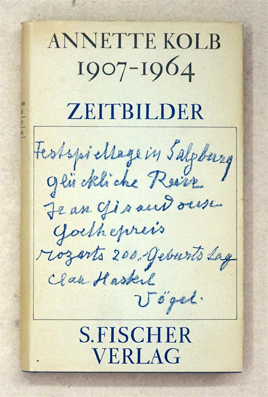 ANNETTE KOLB
1907-1964
ZEITBILDER
Festspieltage in Salzburg
Glückliche Reise
Jean Giraudoux
Goethepreis
Mozarts 200. Geburtstag
Clara Haskil
Vögel.
S. FISCHER
VERLAG